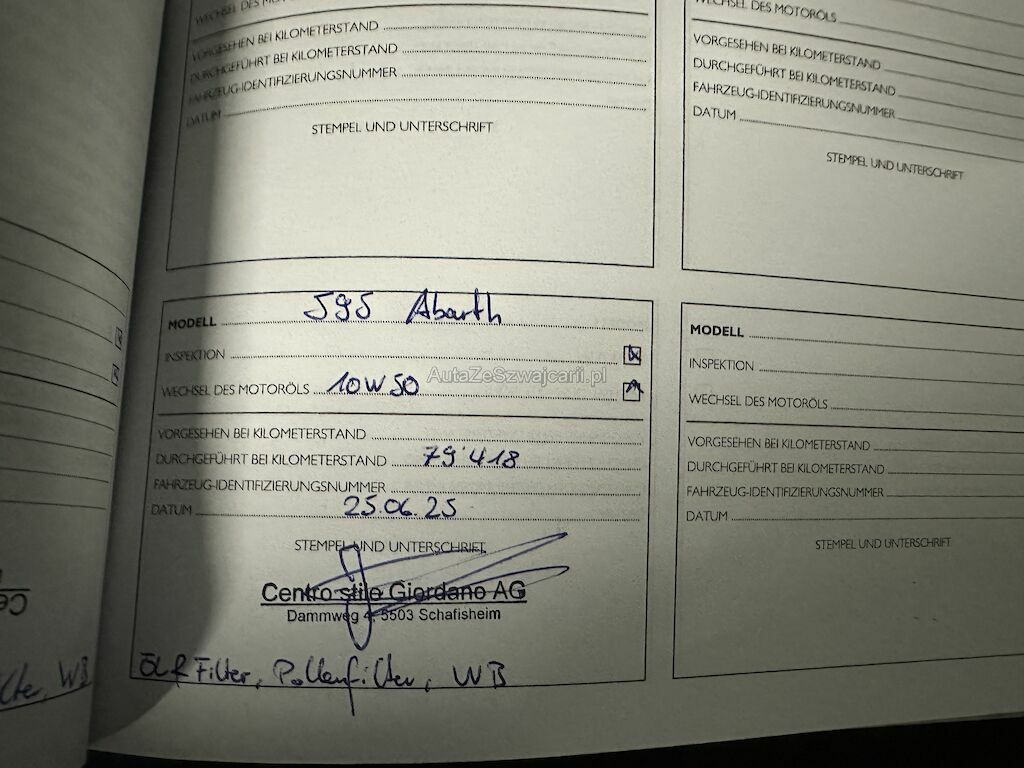 WECHSEL DES MOTORÖLS
VORGESEHEN BEI KILOMETERSTAND
DURCHGEFÜHRT BEI KILOMETERSTAND
FAHRZEUG-IDENTIFIZIERUNGSNUMMER
DATUM
STEMPEL UND UNTERSCHRIFT
WECHSEL DES MOTORÖLS
VORGESEHEN BEI KILOMETERSTAND
DURCHGEFÜHRT BEI KILOMETERSTAND
FAHRZEUG-IDENTIFIZIERUNGSNUMMER
DATUM
STEMPEL UND UNTERSCHRIFT
MODELL 595 Abarth
INSPEKTION
WECHSEL DES MOTORÖLS 10W50
VORGESEHEN BEI KILOMETERSTAND
DURCHGEFÜHRT BEI KILOMETERSTAND 79'418
FAHRZEUG-IDENTIFIZIERUNGSNUMMER
DATUM 25.06.25
STEMPEL UND UNTERSCHRIFT
Centro stile Giordano AG
Dammweg 4, 5503 Schafisheim
Filter, Pollenfilter, WB
MODELL
INSPEKTION
WECHSEL DES MOTORÖLS
VORGESEHEN BEI KILOMETERSTAND
DURCHGEFÜHRT BEI KILOMETERSTAND
FAHRZEUG-IDENTIFIZIERUNGSNUMMER
DATUM
STEMPEL UND UNTERSCHRIFT
WB
AutaZeSzwajcarii.pl